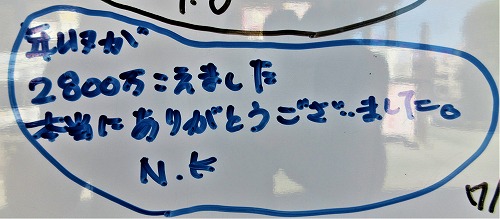 年収が
2800万こえました
本当にありがとうございました。
N.K